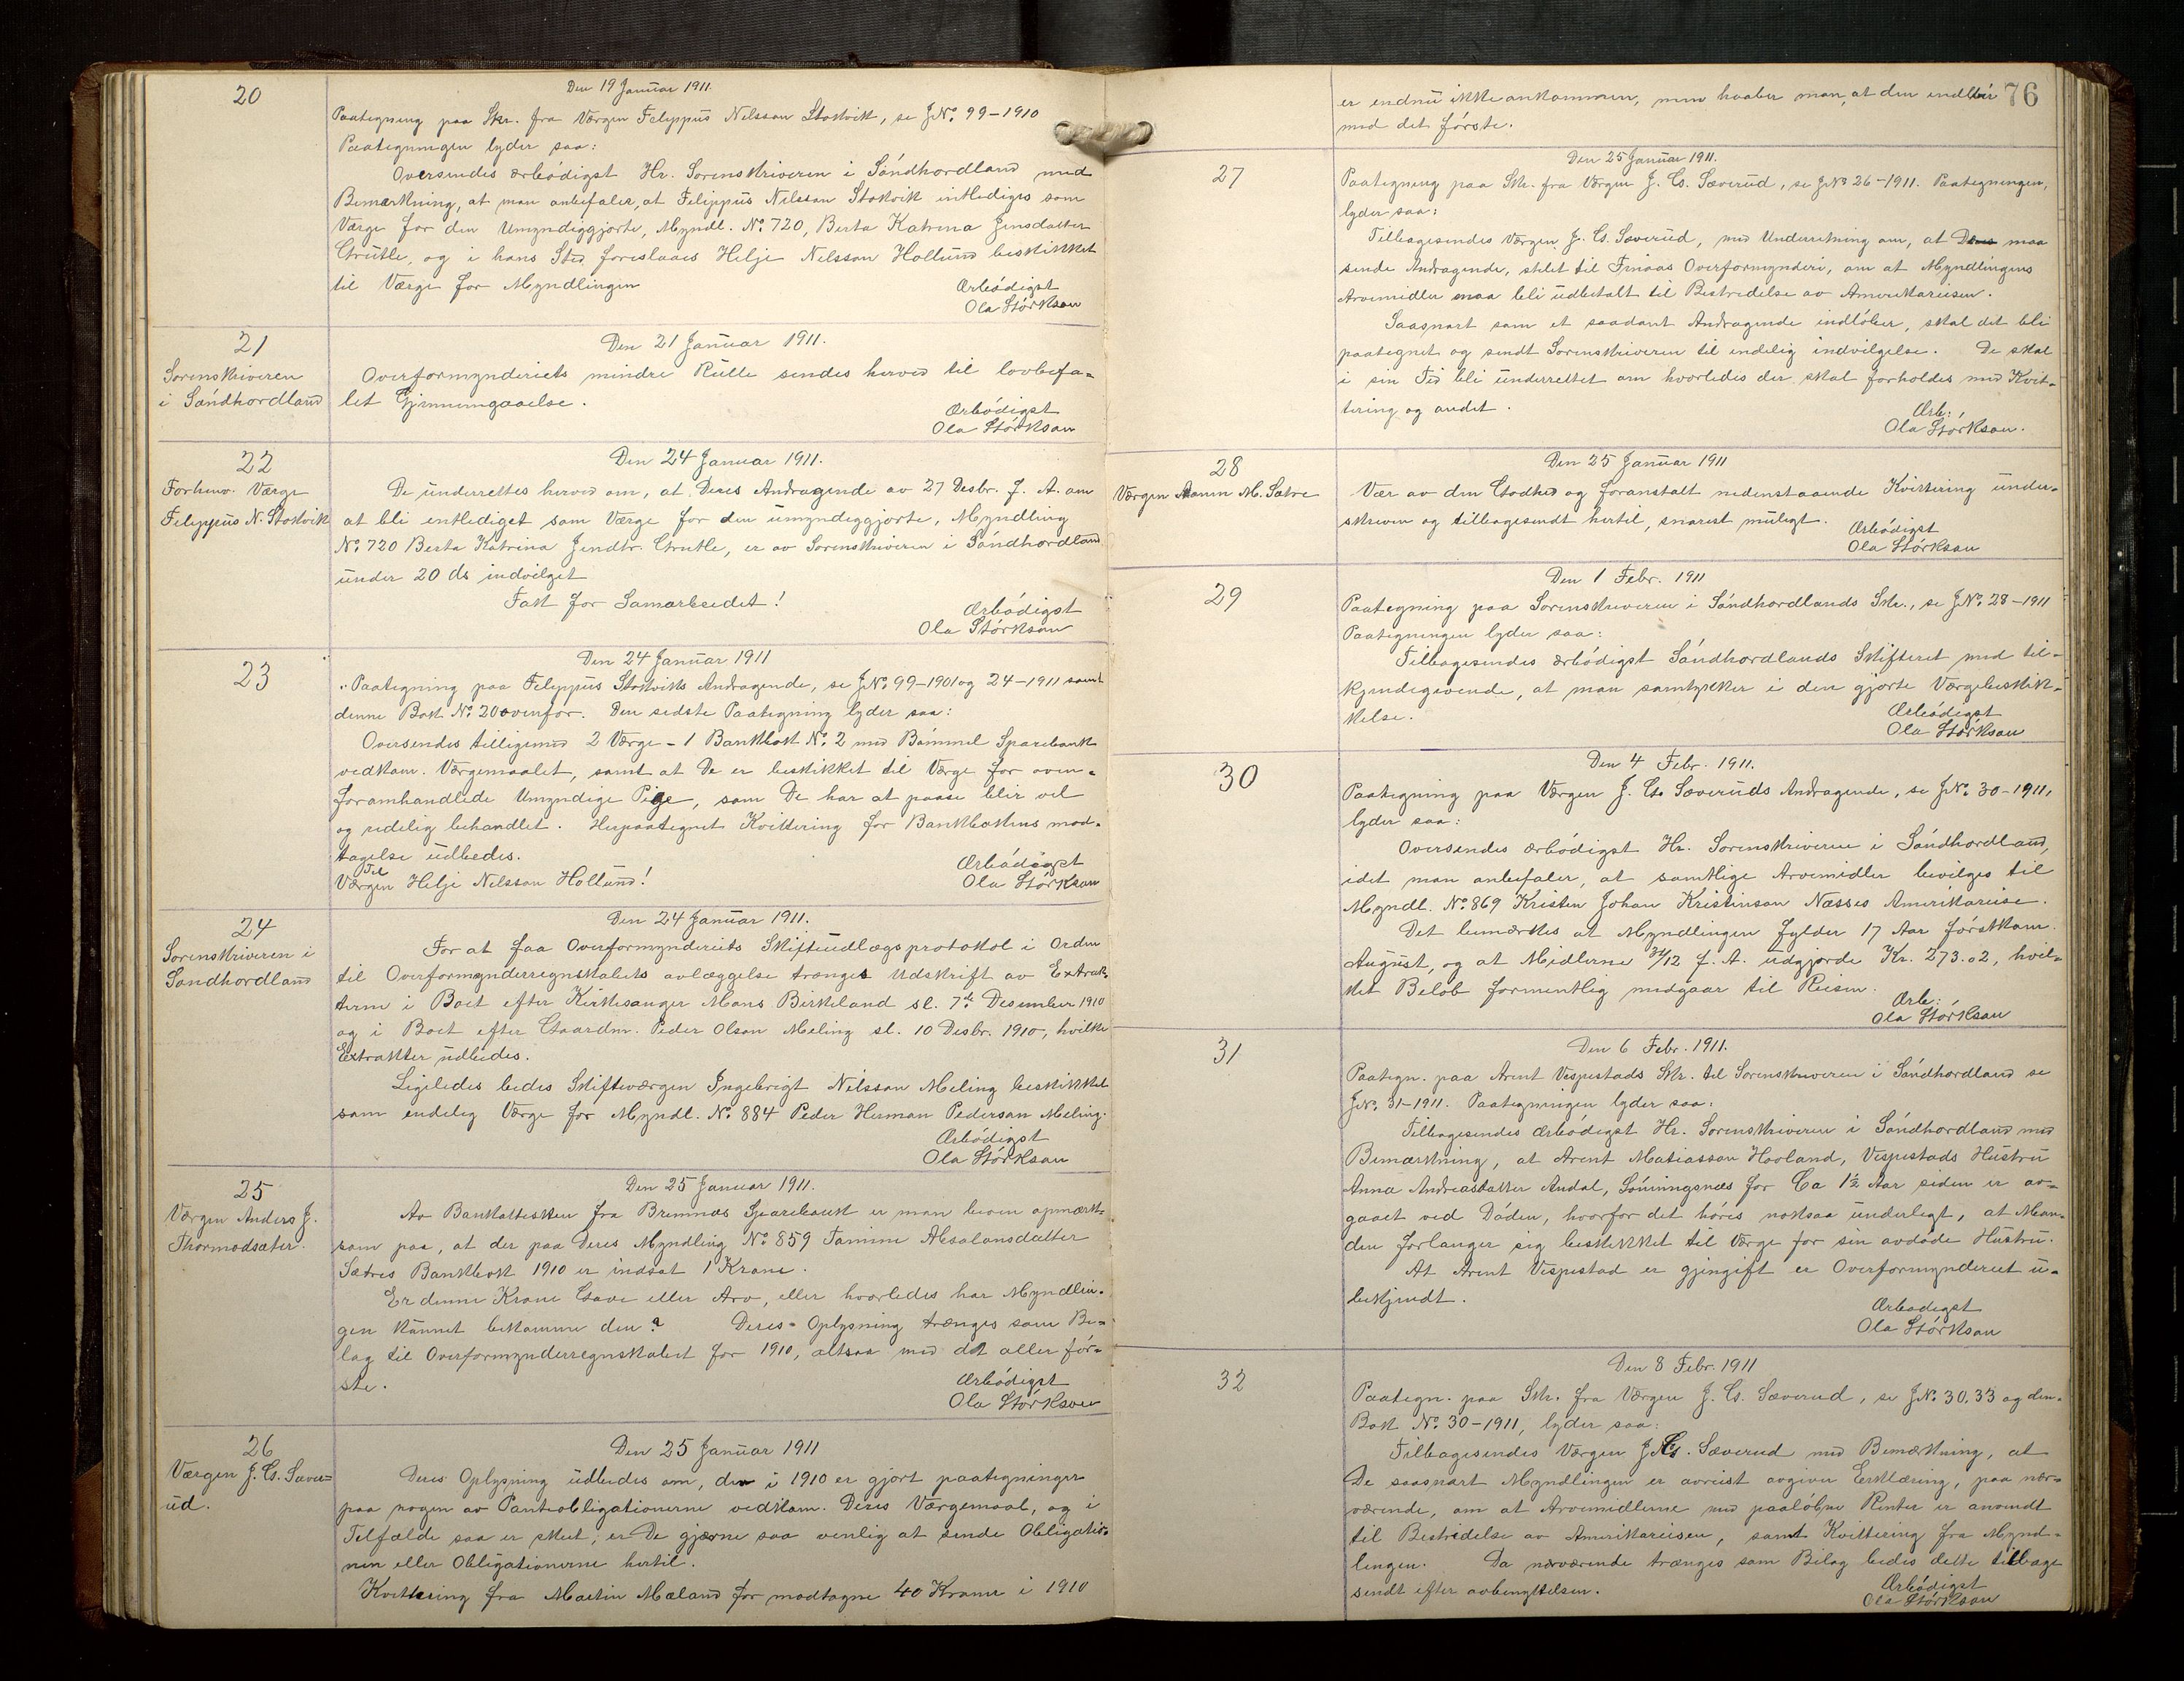 20
Den 19 Januar 1911.
Paategning paa Skr. fra Værgen Felippus Nilsson Stokvik, se JNo. 99-1910
Paategningen lyder saa:
Oversendes ærbödigst Hr. Sorenskriveren i Söndhordland med
Bemærkning, at man anbefaler, at Filippus Nilsson Stokvik entlediges som
Værge for den Umyndiggjorte, Myndl. No. 720, Berta Katrina Jensdatter
Grutle, og i hans Sted foreslaaes Helje Nilsson Hollund beskikket
til Værge for Myndlingen
Ærbödigst
Ola Störkson
21
Sorenskriveren
i Söndhordland
Den 21 Januar 1911.
Overformynderiets mindre Rulle sendes herved til lovbefa-
let Gjennemgaaelse.
Ærbödigst
Ola Störkson
22
Forhenv. Værge
Felippus N. Stokvik
Den 24 Januar 1911.
De underrettes herved om, at Deres Andragende av 27 Desbr. f. A. om
at bli entlediget som Værge for den umyndiggjorte, Myndling
No. 720 Berta Katrina Jendtr. Grutle, er av Sorenskriveren i Söndhordland
under 20 ds indvilget
Takk for Samarbeidet!
Ærbödigst
Ola Störkson
23
Den 24 Januar 1911
Paategning paa Felippus Stokviks Andragende, se JNo. 99-1901 og 24-1911 samt
denne Bok No. 20 ovenfor. Den sedste Paategning lyder saa:
Oversendes tilligemed 2 Værge - 1 Bankbok No. 2 med Bömmel Sparebank
vedkom. Værgemaalet, samt at De er beskikket til Værge for oven-
foramhandlede Umyndige Pige, som De har at paase blir vel
og redelig behandlet. Herpaategnet Kvittering for Bankbokens mod-
tagelse udbedes.
Til
Værgen Helje Nelsson Hollund!
Ærbödigst
Ola Störkson
24
Sorenskriveren i
Söndhordland
Den 24 Januar 1911.
For at faa Overformynderiets Skifteudlægsprotokol i Orden
til Overformynderregnskabets avlæggelse trænges Udskrift av Extrak-
terne i Boet efter Kirkesanger Mons Birkeland sl. 7de Desember 1910
og i Boet efter Gaardm. Peder Olson Meling sl. 10 Desbr. 1910, hvilke
Extrakter udbedes.
Ligeledes bedes Skifteværgen Ingebrigt Nilsson Meling beskikket
som endelig Værge for Myndl. No. 884 Peder Herman Pederson Meling.
Ærbödigst
Ola Störkson
25
Værgen Anders J.
Thormodsæter.
Den 25 Januar 1911.
Av Bankattesten fra Bremnes Sparebank er man bleven opmerk-
som paa, at der paa Deres Myndling No. 859 Tamine Absalonsdatter
Sætres Bankbok 1910 er indsat 1 Krone.
Er denne Krone Gave eller Arv, eller hvorledes har Myndlin-
gen kunnet bekomme den? Deres Oplysning trænges som Bi-
lag til Overformynderregnskabet for 1910, altsaa med det aller för-
ste.
Ærbödigst
Ola Störkson
26
Værgen J. G. Sæver-
ud.
Den 25 Januar 1911
Deres Oplysning udbedes om, der i 1910 er gjort paategninger
paa nogen av Panteobligationerne vedkom. Deres Værgemaal, og i
Tilfælde saa er skeet, er De gjærne saa venlig at sende Obligatio-
nen eller Obligationerne hertil.
Kvittering fra Martin Mæland for modtagne 40 Kroner i 1910
76
er endnu ikke ankommen, men haaber man, at den endlöber
med det förste.
27
Den 25 Januar 1911.
Paategning paa Skr. fra Værgen J. G. Sæverud, se JNo. 26-1911. Paategningen,
lyder saa:
Tilbagesendes Værgen J. G. Sæverud, med Underretning om, at maa
sende Andragende, stilet til Finaas Overformynderi, om at Myndlingens
Arvemidler maa bli udbetalt til Bestridelse av Amerikareisen.
Saasnart som et saadant Andragende indlöber, skal det bli
paategnet og sendt Sorenskriveren til endelig indvilgelse. De skal
i sin Tid bli underrettet om hvorledes der skal forholdes med Kvit-
tering og andet.
Ærb.,
Ola Störkson.
28
Værgen M. Sætre
Den 25 Januar 1911
Vær av den Godhed og foranstalt nedenstaaende Kvittering under-
skreven og tilbagesendt hertil, snarest muligt.
Ærbödigst
Ola Störkson
29
Den 1 Febr. 1911
Paategning paa Sorenskriveren i Söndhordlands Skr., se JNo. 28-1911
Paategningen lyder saa:
Tilbagesendes ærbödigst Söndhordlands Skifteret med til-
kjendegivende, at man samtykker i den gjorte Værgebeskik-
kelse.
Ærbödigst
Ola Störkson
30
Den 4 Febr. 1911.
Paategning paa Værgen J. G. Sæveruds Andragende, se JNo. 30-1911,
lyder saa:
Oversendes ærbödigst Hr. Sorenskriveren i Söndhordland,
idet man anbefaler, at samtlige Arvemidler bevilges til
Myndl. No. 869 Kristen Johan Kristinson Næsses Amerikareise.
Det bemærkes at Myndlingen fylder 17 Aar förstkom.
August, og at Midlerne 31/12 f. A. udgjorde Kr. 273.02, hvil-
ket Belöb formentlig medgaar til Reisen.
Ærb.:
Ola Störkson
31
Den 6 Febr. 1911.
Paategn. paa Arent Vespestads Skr. til Sorenskriveren i Söndhordland se
JNo. 31-1911. Paategningen lyder saa:
Tilbagesendes Ærbödigst Hr. Sorenskriveren i Söndhordland med
Bemærkning, at Arent Matiasson Hovland, Vespestads Hustru
Anna Andreasdatter Andal, Lönningsnæs for Ca 1½ Aar siden er av-
gaaet ved Döden, hvorfor det höres noksaa underlegt, at Man-
den forlanger sig beskikket til Værge for sin avdöde Hustru.
At Arent Vespestad er gjengift er Overformynderiet u-
bekjendt.
Ærbödigst
Ola Störkson
32
Den 8 Febr. 1911
Paategn. paa Skr. fra Værgen J. G. Sæverud, se JNo. 30. 33 og den.
Bok No. 30-1911, lyder saa:
Tilbagesendes Værgen J. G. Sæverud med Bemærkning, at
De saasnart Myndlingen er avreist avgiver Eerklæring, paa nær-
værende, om at Arvemidlerne med paalöbne Renter er anvendt
til Bestridelse av Amerikareisen, samt Kvittering fra Mynd-
lingen. Da nærværende trænges som Bilag bedes dette tilbage
sendt efter avbenyttelsen.
Ærbödigst
Ola Störkson